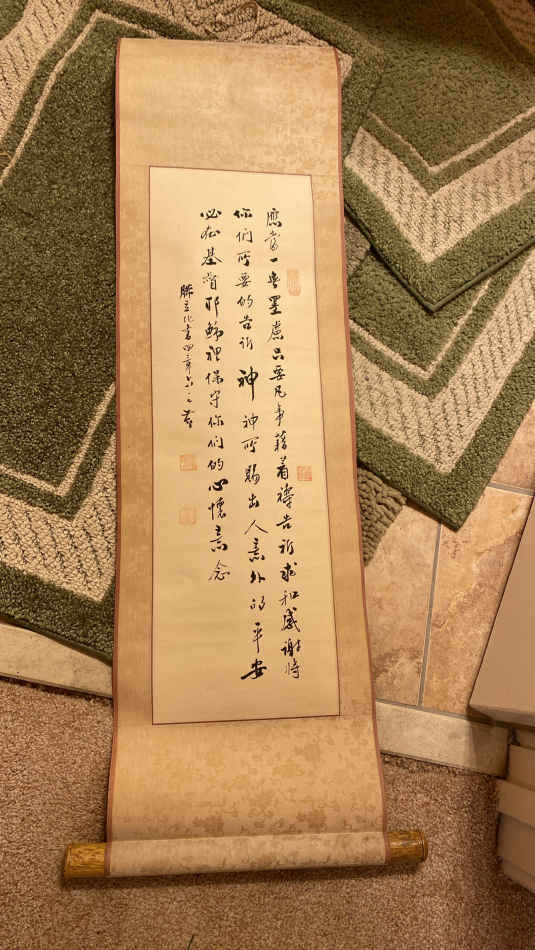 應當一無罣慮只要凡事藉着禱告祈求和感謝將
你們所要的告訴 神 神所賜出人意外的平安
必在基督耶穌裡保守你們的心懷意念
立化書四三年六